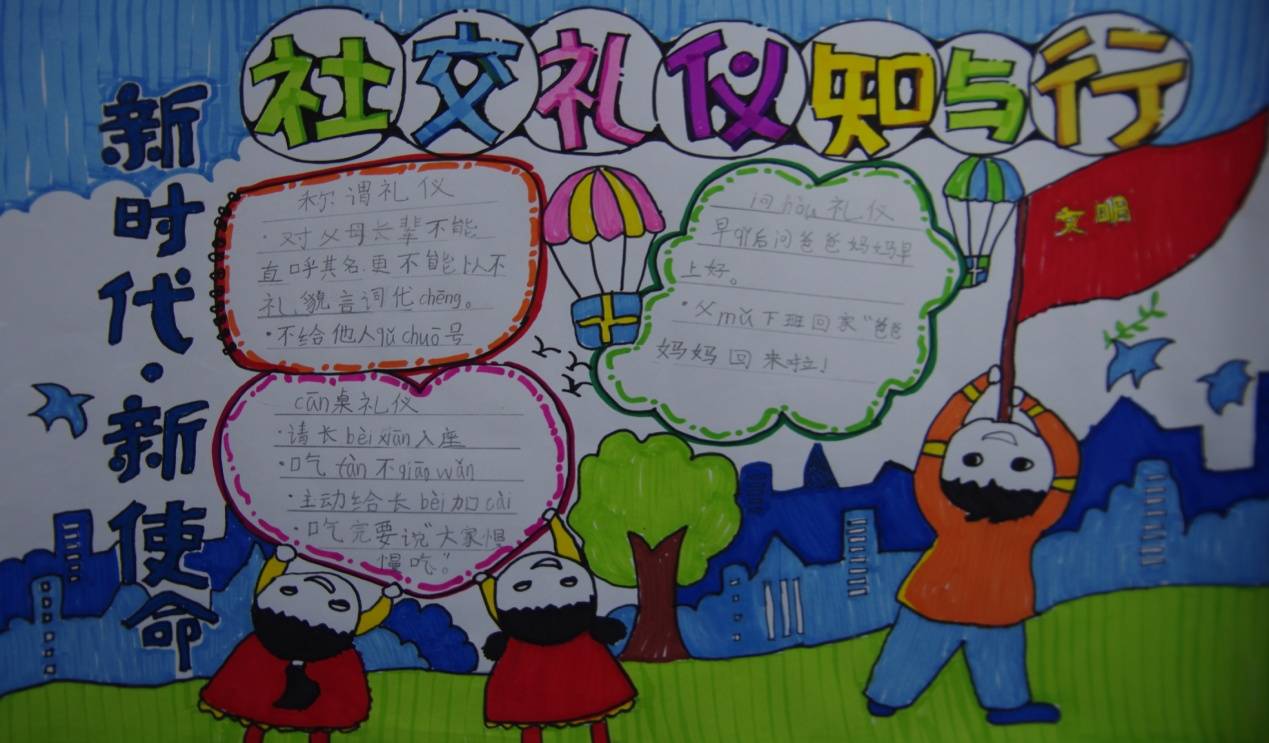 社交礼仪知与行
新时代·新使命
称谓礼仪
·对父母长辈不能
直呼其名,更不能以不
礼貌言词代chēng。
·不给他人qǔ chuō号
cān桌礼仪
·请长bèi xiān入座
·口气tàn不giāo wǎn
·主动给长bèi加cài
·口气完要说"大家慢
慢吃。"
问hòu礼仪
早qǐ后问爸爸妈妈早
上好。
·父mǔ下班回家"爸爸
妈妈回来啦!
文明